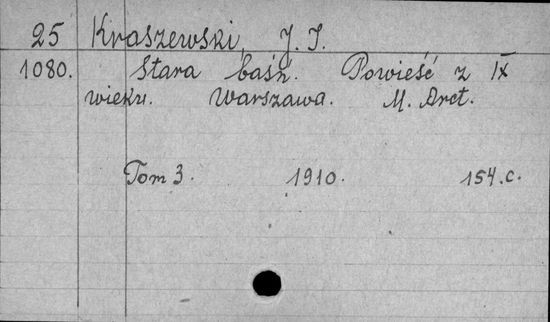 25 Kraszewski, J. I.
1080. Stara baśń. Powieść z IX
wieku. Warszawa. M. Arct.
Tom 3. 1910. 154.c.